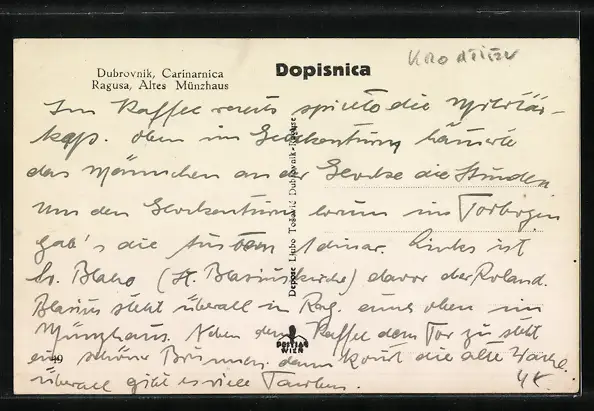 Dubrovnik, Carinarnica
Ragusa, Altes Münzhaus
Dopisnica
Im Kaffee rechts spielte die Militär-
kap. Oben im Glockenturm hämmerte
das Männchen an der Glocke die Stunden
Um den Glockenturm herum im Torbogen
gab's die 1 dinar. Links ist
Sv. Blaho (St. Blasiuskirche) davor der Roland.
Blasius steht überall in Rag. auch oben im
Münzhaus. Neben dem Kaffee dem Tor zu steht
ein schöner Brunnen, dann kommt die alte Wache.
Überall gibt es viele Tauben.
Depose Ljubo Tošović Dubrovnik-Raguse
POSTIAG
WIEN
49